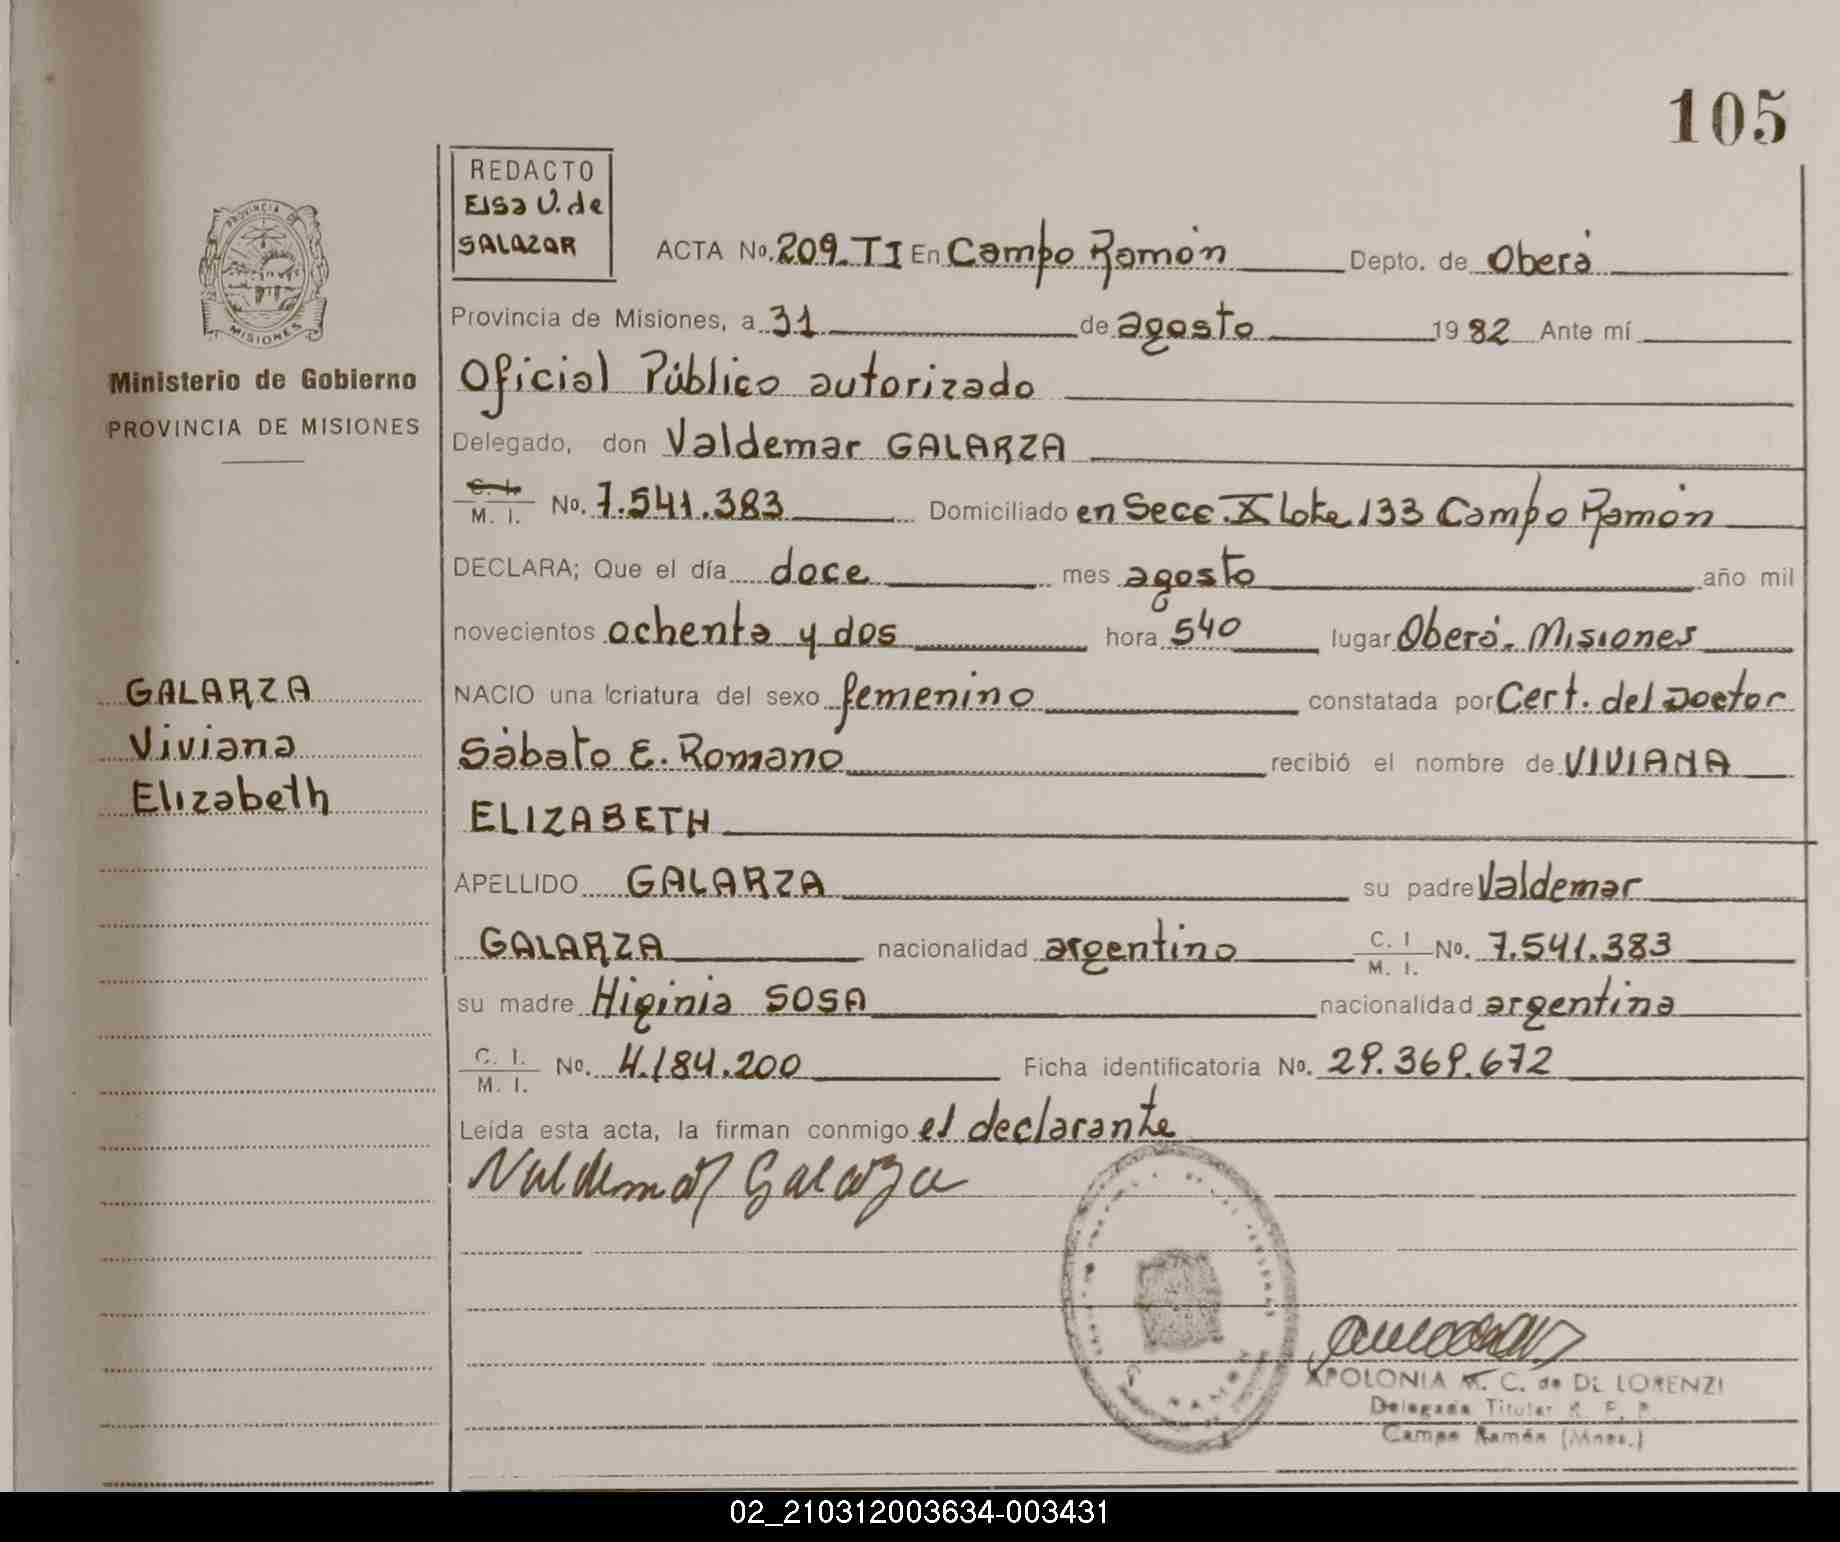 105
REDACTO
Elsa V. de
SALAZAR
ACTA No. 209. TI En Campo Ramón Depto. de Oberá
Provincia de Misiones, a 31 de agosto 1982 Ante mí
Oficial Público autorizado
Delegado, don Valdemar GALARZA
C. I. M. I. No. 7.541.383 Domiciliado en Secc. X Lote 133 Campo Ramón
DECLARA; Que el día doce mes agosto año mil
novecientos ochenta y dos hora 540 lugar Oberá. Misiones
NACIO una criatura del sexo femenino constatada por Cert. del Doctor
Sábato E. Romano recibió el nombre de VIVIANA
ELIZABETH
APELLIDO GALARZA su padre Valdemar
GALARZA nacionalidad argentino C. I M. I. No. 7.541.383
su madre Higinia SOSA nacionalidad argentina
C. I. M. I. No. 4.184.200 Ficha identificatoria No. 29.369.672
Leída esta acta, la firman conmigo el declarante
Valdemar Galarza
PROVINCIA DE
MISIONES
Ministerio de Gobierno
PROVINCIA DE MISIONES
GALARZA
Viviana
Elizabeth
APOLONIA M. C. de DE LORENZI
Delegada Titular R. P. P.
Campo Ramón (Mnes.)
02_210312003634-003431